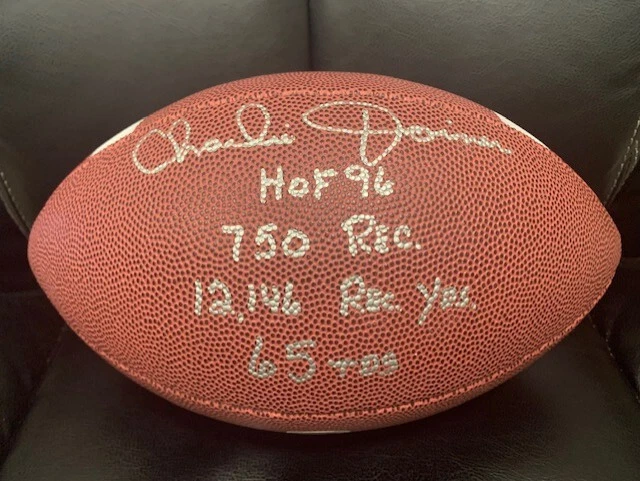 Charlie Joiner
HOF 96
750 REC.
12,146 REC. YDS.
65 TDS